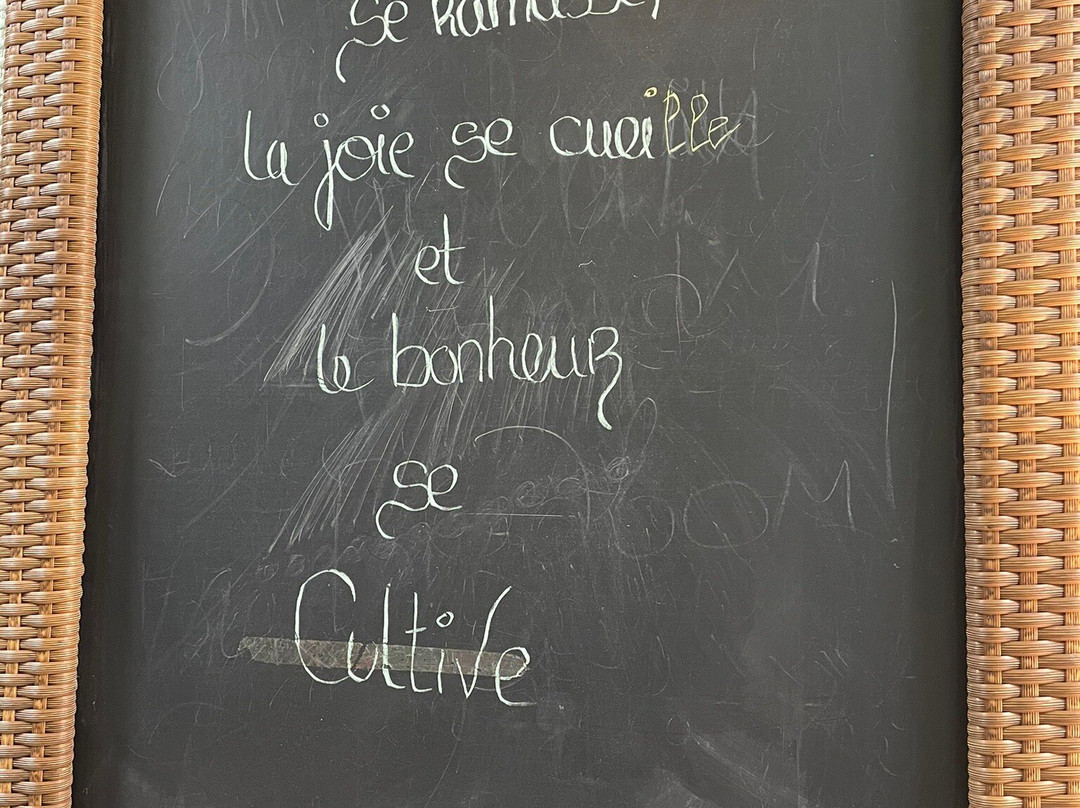 se Ramasse,
la joie se cueille
et
le bonheur
se
Cultive